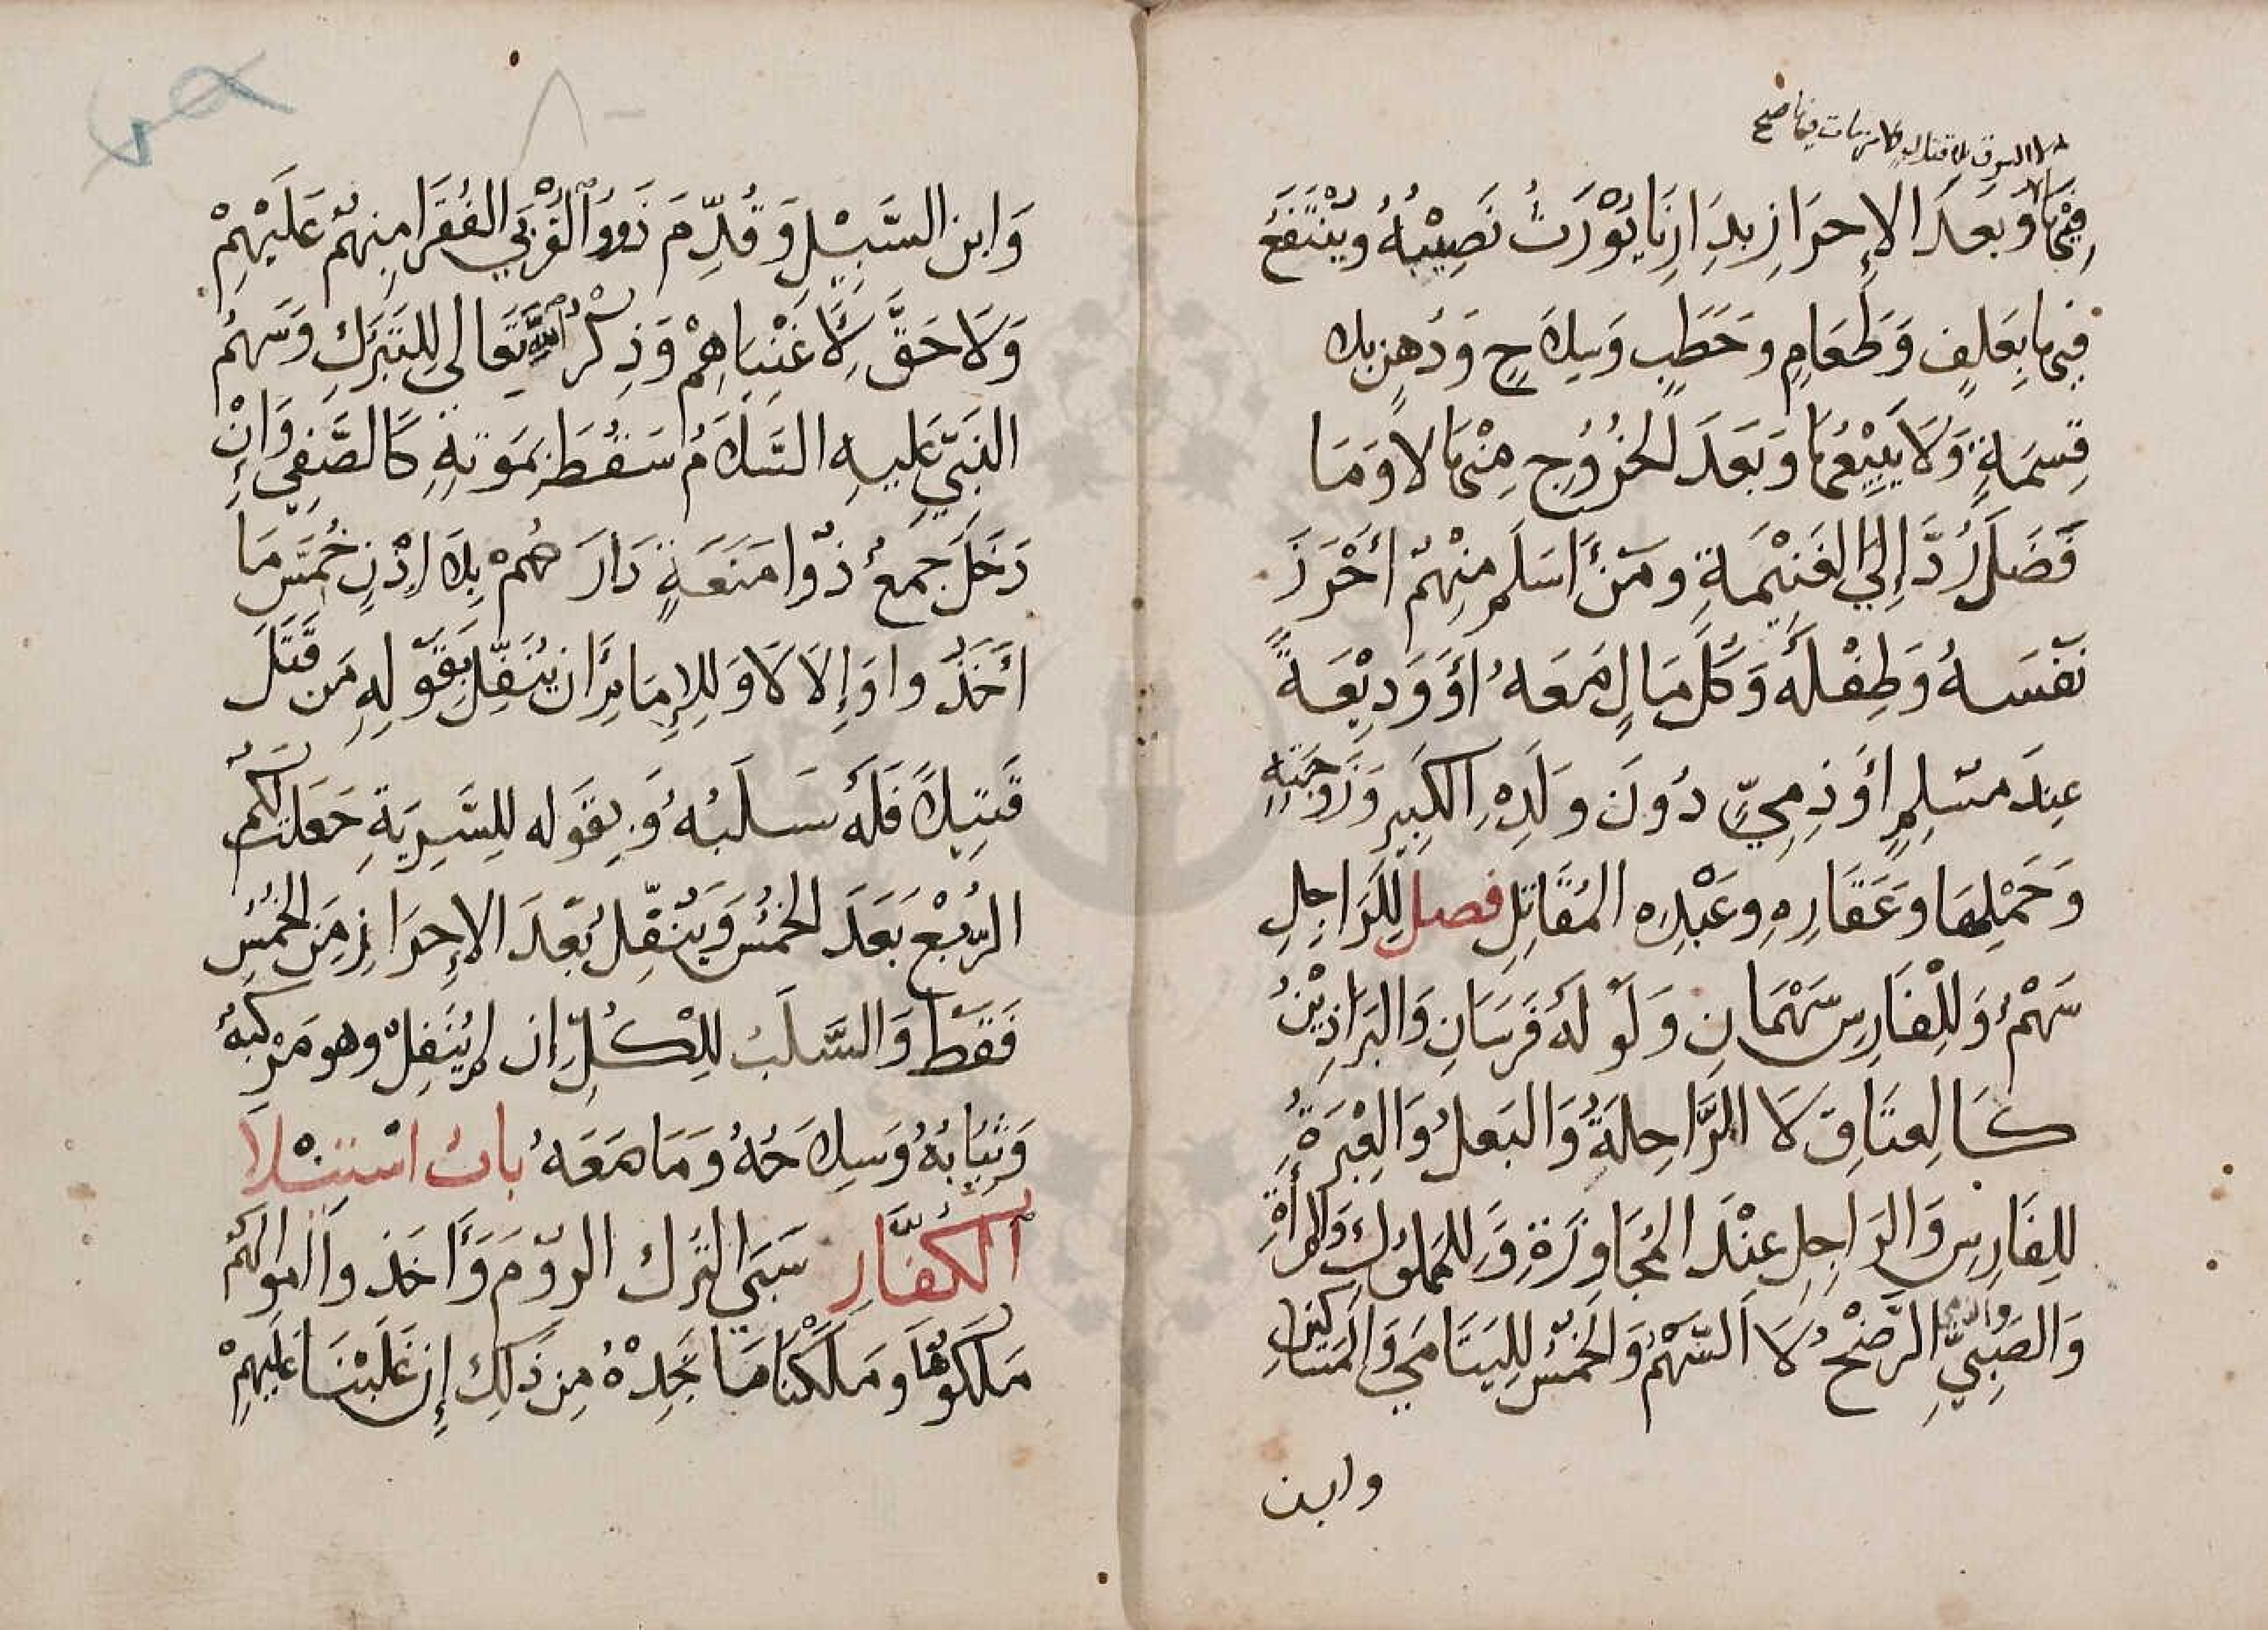 فيها وبعد الإحراز بدارنا يورث نصيبه وينتفع
فيها بعلف وطعام وحطب وسلاح ودهن بلا
قسمة ولا يبيعها وبعد الخروج منها لا وما
فضل رد إلي الغنيمة ومن اسلم منهم أحرز
نفسه وطفله وكل مال معه او وديعة
عند مسلم او ذمي دون ولده الكبير وزوجته
وحملها وعقاره وعبده المقاتل فصل للراجل
سهم وللفارس سهمان ولو له فرسان والبراذين
كالعتاق لا الراحلة والبغل والعبرة
للفارس والراجل عند المجاوزة وللمملوك والمرأة
والصبي والذمي الرضخ لا السهم والخمس لليتامي والمساكين
وابن
وابن السبيل وقدم ذووا القربي الفقرا منهم عليهم
ولا حق لأغنياهم وذكر الله تعالي للتبرك وسهم
النبي عليه السلام سقط بموته كالصفي وإن
دخل جمع ذوا منعة دارهم بلا إذن خمس ما
اخذوا وإلا لا وللإمام ان ينفل بقوله من قتل
قتيلا فله سلبه وبقوله للسرية جعلت لكم
الربع بعد الخمس وينفل بعد الإحراز من الخمس
فقط والسلب للكل إن لم ينفل وهو مركبه
وثيابه وسلاحه وما معه باب استيلا
الكفار سبي الترك الروم واخذوا اموالهم
ملكوها وملكنا ما نجده من ذلك إن غلبنا عليهم